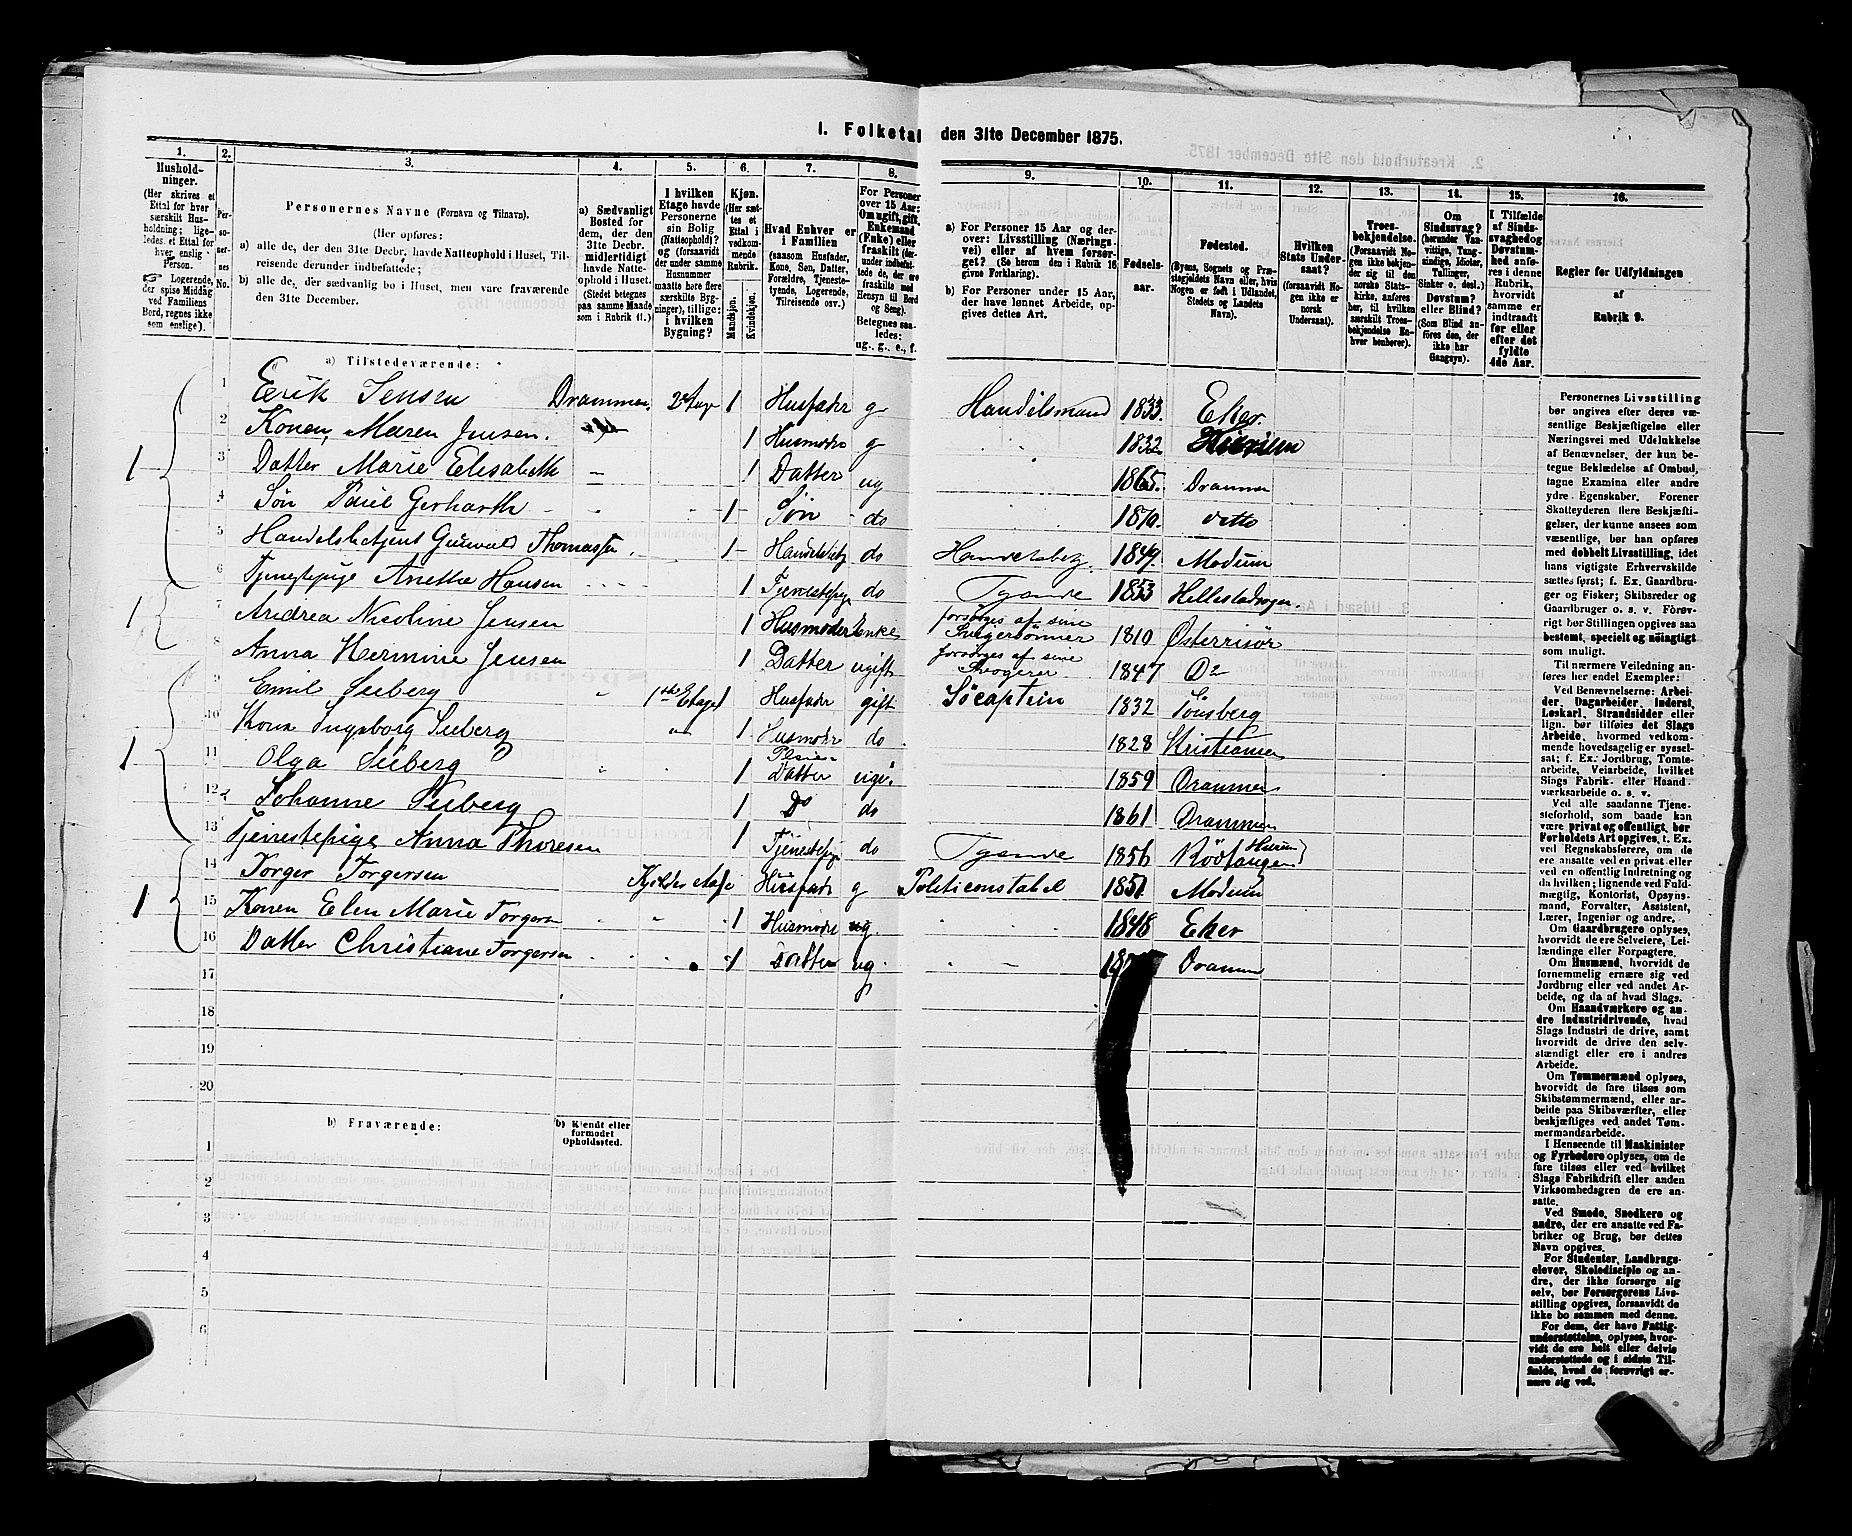 1. Folketal den 31te December 1875.
1. 2. 3. 4. 5. 6. 7. 8. 9. 10. 11. 12. 13. 14. 15. 16.
Husholdninger.
(Her skrives et Ettal for hver særskilt Husholdning; ligeledes et Ettal for hver enslig Person.
Logerende, der spise Middag ved Familiens Bord, regnes ikke som enslige).
Personernes No.
Personernes Navne (Fornavn og Tilnavn).
(Her opføres:
a) alle de, der den 31te Decbr. havde Natteophold i Huset, Tilreisende derunder indbefattede;
b) alle de, der sædvanlig bo i Huset, men vare fraværende den 31te December.
a) Sædvanligt Bosted for dem, der den 31te Decbr. midlertidigt havde Natteophold i Huset.
(Stedet betegnes paa samme Maade som i Rubrik 11.)
I hvilken Etage havde Personerne sin Bolig (Natteophold)?
(forsaavidt der under samme Husnummer maatte høre flere særskilte Bygninger), tillige: i hvilken Bygning?
Kjøn.
(Her sættes et Ettal i vedkommende Rubrik.
Mandskjøn.
Kvindekjøn.
Hvad Enhver er i Familien
(saasom Husfader, Kone, Søn, Datter, Forældre, Tjenestetyende, Logerende, Tilreisende osv.)
For Personer over 15 Aar: Om ugift, gift, Enkemand (Enke) eller fraskilt
Betegnes saaledes: ug., g., e., f.
a) For Personer 15 Aar og derover: Livsstilling (Næringsvei) eller af hvem forsørget? (Se herom den i Rubrik 16 givne Forklaring).
b) For Personer under 15 Aar, der have lønnet Arbeide, opgives dettes Art.
Fødselsaar.
Fødested.
(Byens, Sognets og Præstegjeldets Navn eller, hvis Nogen er født i Udlandet, Stedets og Landets Navn).
Hvilken Stats Undersaat?
(forsaavidt Nogen ikke er norsk Undersaat).
Troesbekjendelse.
(Forsaavidt Nogen ikke bekjender sig til den norske Statskirke, anføres her, til hvilken særskilt Troesbekjendelse Enhver henhører).
Om Sindssvag?
(herunder Vanvittige, Tungsindige, Idioter, Tullinger, Sinker o. desl.)
Døvstum? eller Blind?
(Som Blind anføres den, der ikke har Gangsyn).
I Tilfælde af Sindssvaghed og Døvstumhed anføres i denne Rubrik, hvorvidt samme er indtraadt før eller efter det fyldte 4de Aar.
Regler for Udfyldningen af Rubrik 9.
a) Tilstedeværende:
1 1 Eerik Jensen Drammen. 2 Etage 1 Husfader g Handelsmand 1833. Eker.
2 Konen, Maren Jensen. 1 Husmodre g 1832
3 Datter Marie Elisabeth 1 Datter ug 1865. Drammen
4 Søn Paul Gerharth 1 Søn do 1870. detto
5 Handelsbetjent Gunvald Thomassen 1 Handelsbetj do Handelsbetj. 1849. Modum
6 Tjenestepige Anethe Hansen 1 Tjenestepige do Tyende 1853 Hellestadvogn.
1 7 Andrea Nicoline Jensen 1 Husmoder Enke forsørges af sine Svigersønner 1810 Østerrisør
8 Anna Hermine Jensen 1 Datter ugift forsørges af sine Svogere 1847 Do
1 9 Emil Seeberg 1ste Etage 1 Husfader gift Søcaptein 1832 Tønsberg
10 Kona Ingeborg Seeberg 1 Husmodre do 1828 Kristiansan
11 Olga Seeberg 1 Datter ugi. 1859 Drammen
12 Johanne Seeberg 1 Do do 1861 Drammen
13 Tjenestepige Anna Thoresen 1 Tjenestepige do Tyende 1856 Rødtangen (Hurum)
1 14 Torger Torgersen Kjelder Etage 1 Husfader g Politiconstabel 1851 Modum
15 Konen Elen Marie Torgersen 1 Husmodre ug 1848 Eker
16 Datter Christiane Torgersen 1 Datter ug. Drammen
17
18
19
20
b) Fraværende:
b) Kjendt eller formodet Opholdssted.
1
2
3
4
5
6
Personernes Livsstilling bør angives efter deres væsentlige Beskjæftigelse eller Næringsvei med Udelukkelse af Benævnelser, der kun betegne Beklædelse af Ombud, tagne Examina eller andre ydre Egenskaber. Forener Skatteyderen flere Beskjæftigelser, der kunne ansees som væsentlige, bør han opføres med dobbelt Livsstilling, idet hans vigtigste Erhvervskilde sættes først; f. Ex. Gaardbruger og Fisker; Skibsreder og Gaardbruger o. s. v. Forøvrigt bør Stillingen opgives saa bestemt, specielt og nøiagtigt som muligt.
Til nærmere Veiledning anføres her endel Exempler:
Ved Benævnelserne: Arbeider, Dagarbeider, Inderst, Løskarl, Strandsidder eller lign. bør tilføies det Slags Arbeide, hvormed vedkommende hovedsagelig er sysselsat; f. Ex. Jordbrug, Tomtearbeide, Veiarbeide, hvilket Slags Fabrik- eller Haandværksarbeide o. s. v.
Ved alle saadanne Tjenesteforhold, som baade kan være privat og offentligt, bør Forholdets Art opgives, f. Ex. ved Regnskabsførere, om de ere ansatte ved en privat eller en offentlig Indretning og da hvilken; lignende ved Fuldmægtig, Kontorist, Opsynsmand, Forvalter, Assistent, Lærer, Ingeniør og andre.
Om Gaardbrugere oplyses, hvorvidt de ere Selveiere, Leilændinge eller Forpagtere.
Om Husmænd, hvorvidt de fornemmelig ernære sig ved Jordbrug eller ved andet Arbeide, og da af hvad Slags.
Om Haandværkere og andre Industridrivende, hvad Slags Industri de drive, samt hvorvidt de drive den selvstændigt eller ere i andres Arbeide.
Om Tømmermænd oplyses, hvorvidt de fare tilsøs som Skibstømmermænd, eller arbeide paa Skibsværfter, eller beskjæftiges ved andet Tømmermandsarbeide.
I Henseende til Maskinister og Fyrbødere oplyses, om de fare tilsøs eller ved hvilket Slags Fabrikdrift eller anden Virksomhedsgren de ere ansatte.
Ved Smede, Snedkere og andre, der ere ansatte ved Fabriker og Brug, bør dettes Navn opgives.
For Studenter, Landbrugselever, Skoledisciple og andre, der ikke forsørge sig selv, bør Forsørgerens Livsstilling opgives, forsaavidt de ikke bo sammen med denne.
For dem, der have Fattigunderstøttelse, oplyses, hvorvidt de ere helt eller delvis understøttede og i sidste Tilfælde, hvad de forøvrigt ernære sig ved.